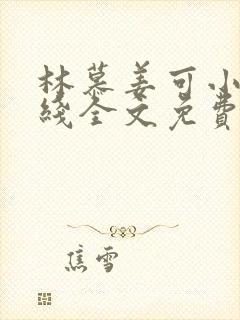 林慕姜可小
线全文免費
焦雪